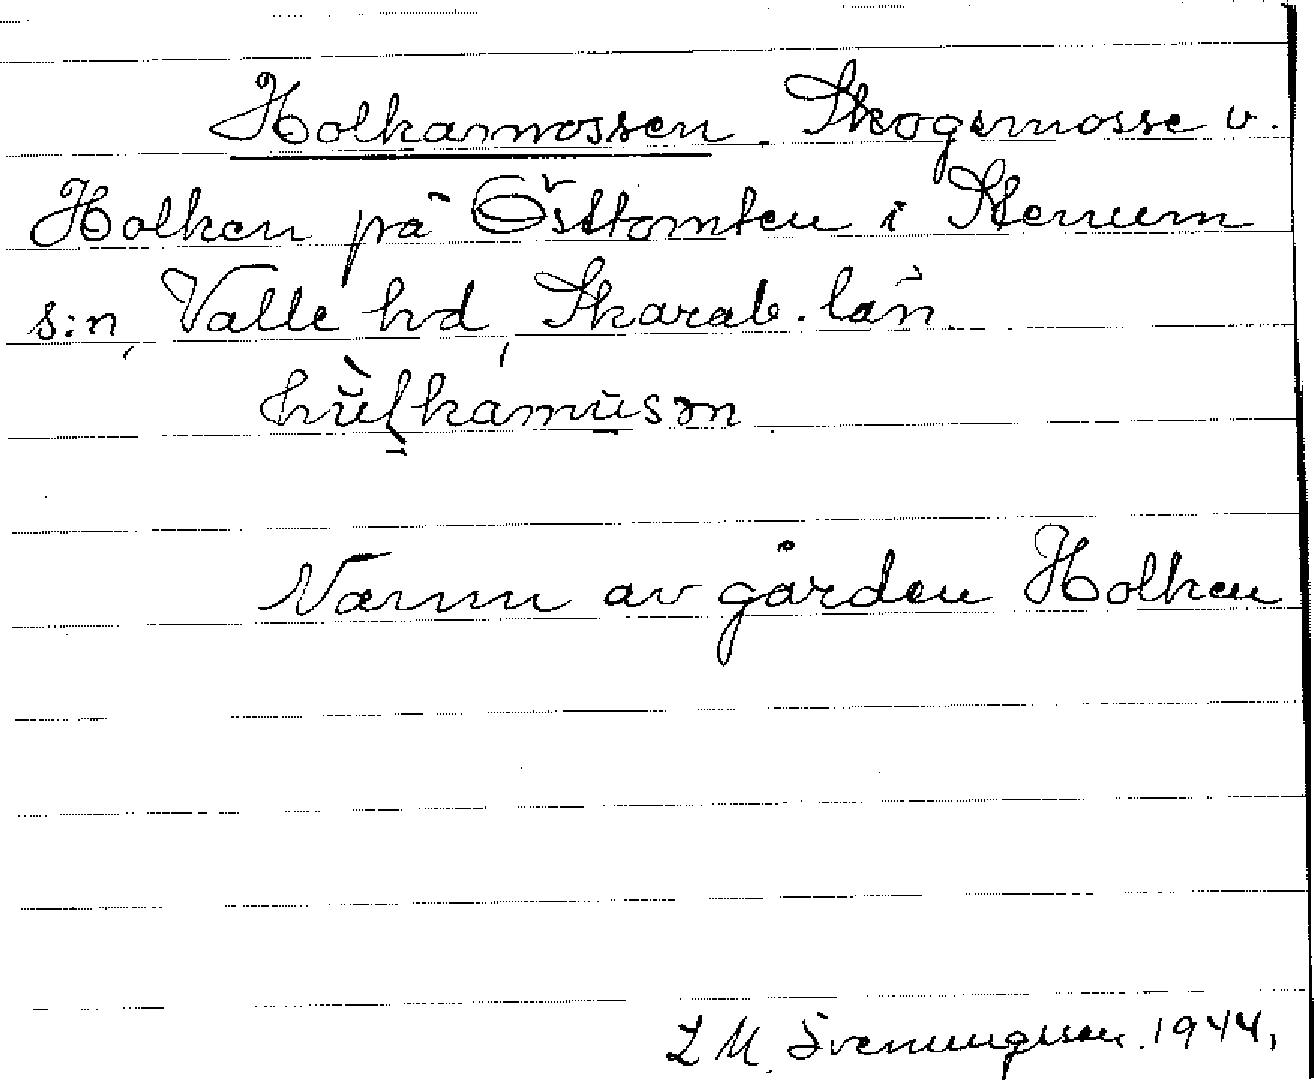 Holkamossen. Skogsmosse v.
Holken på Östtomten i Stenum
s:n, Valle hd, Skarab. län.
Namn av gården Holken
L M. Svenungsson. 1944.